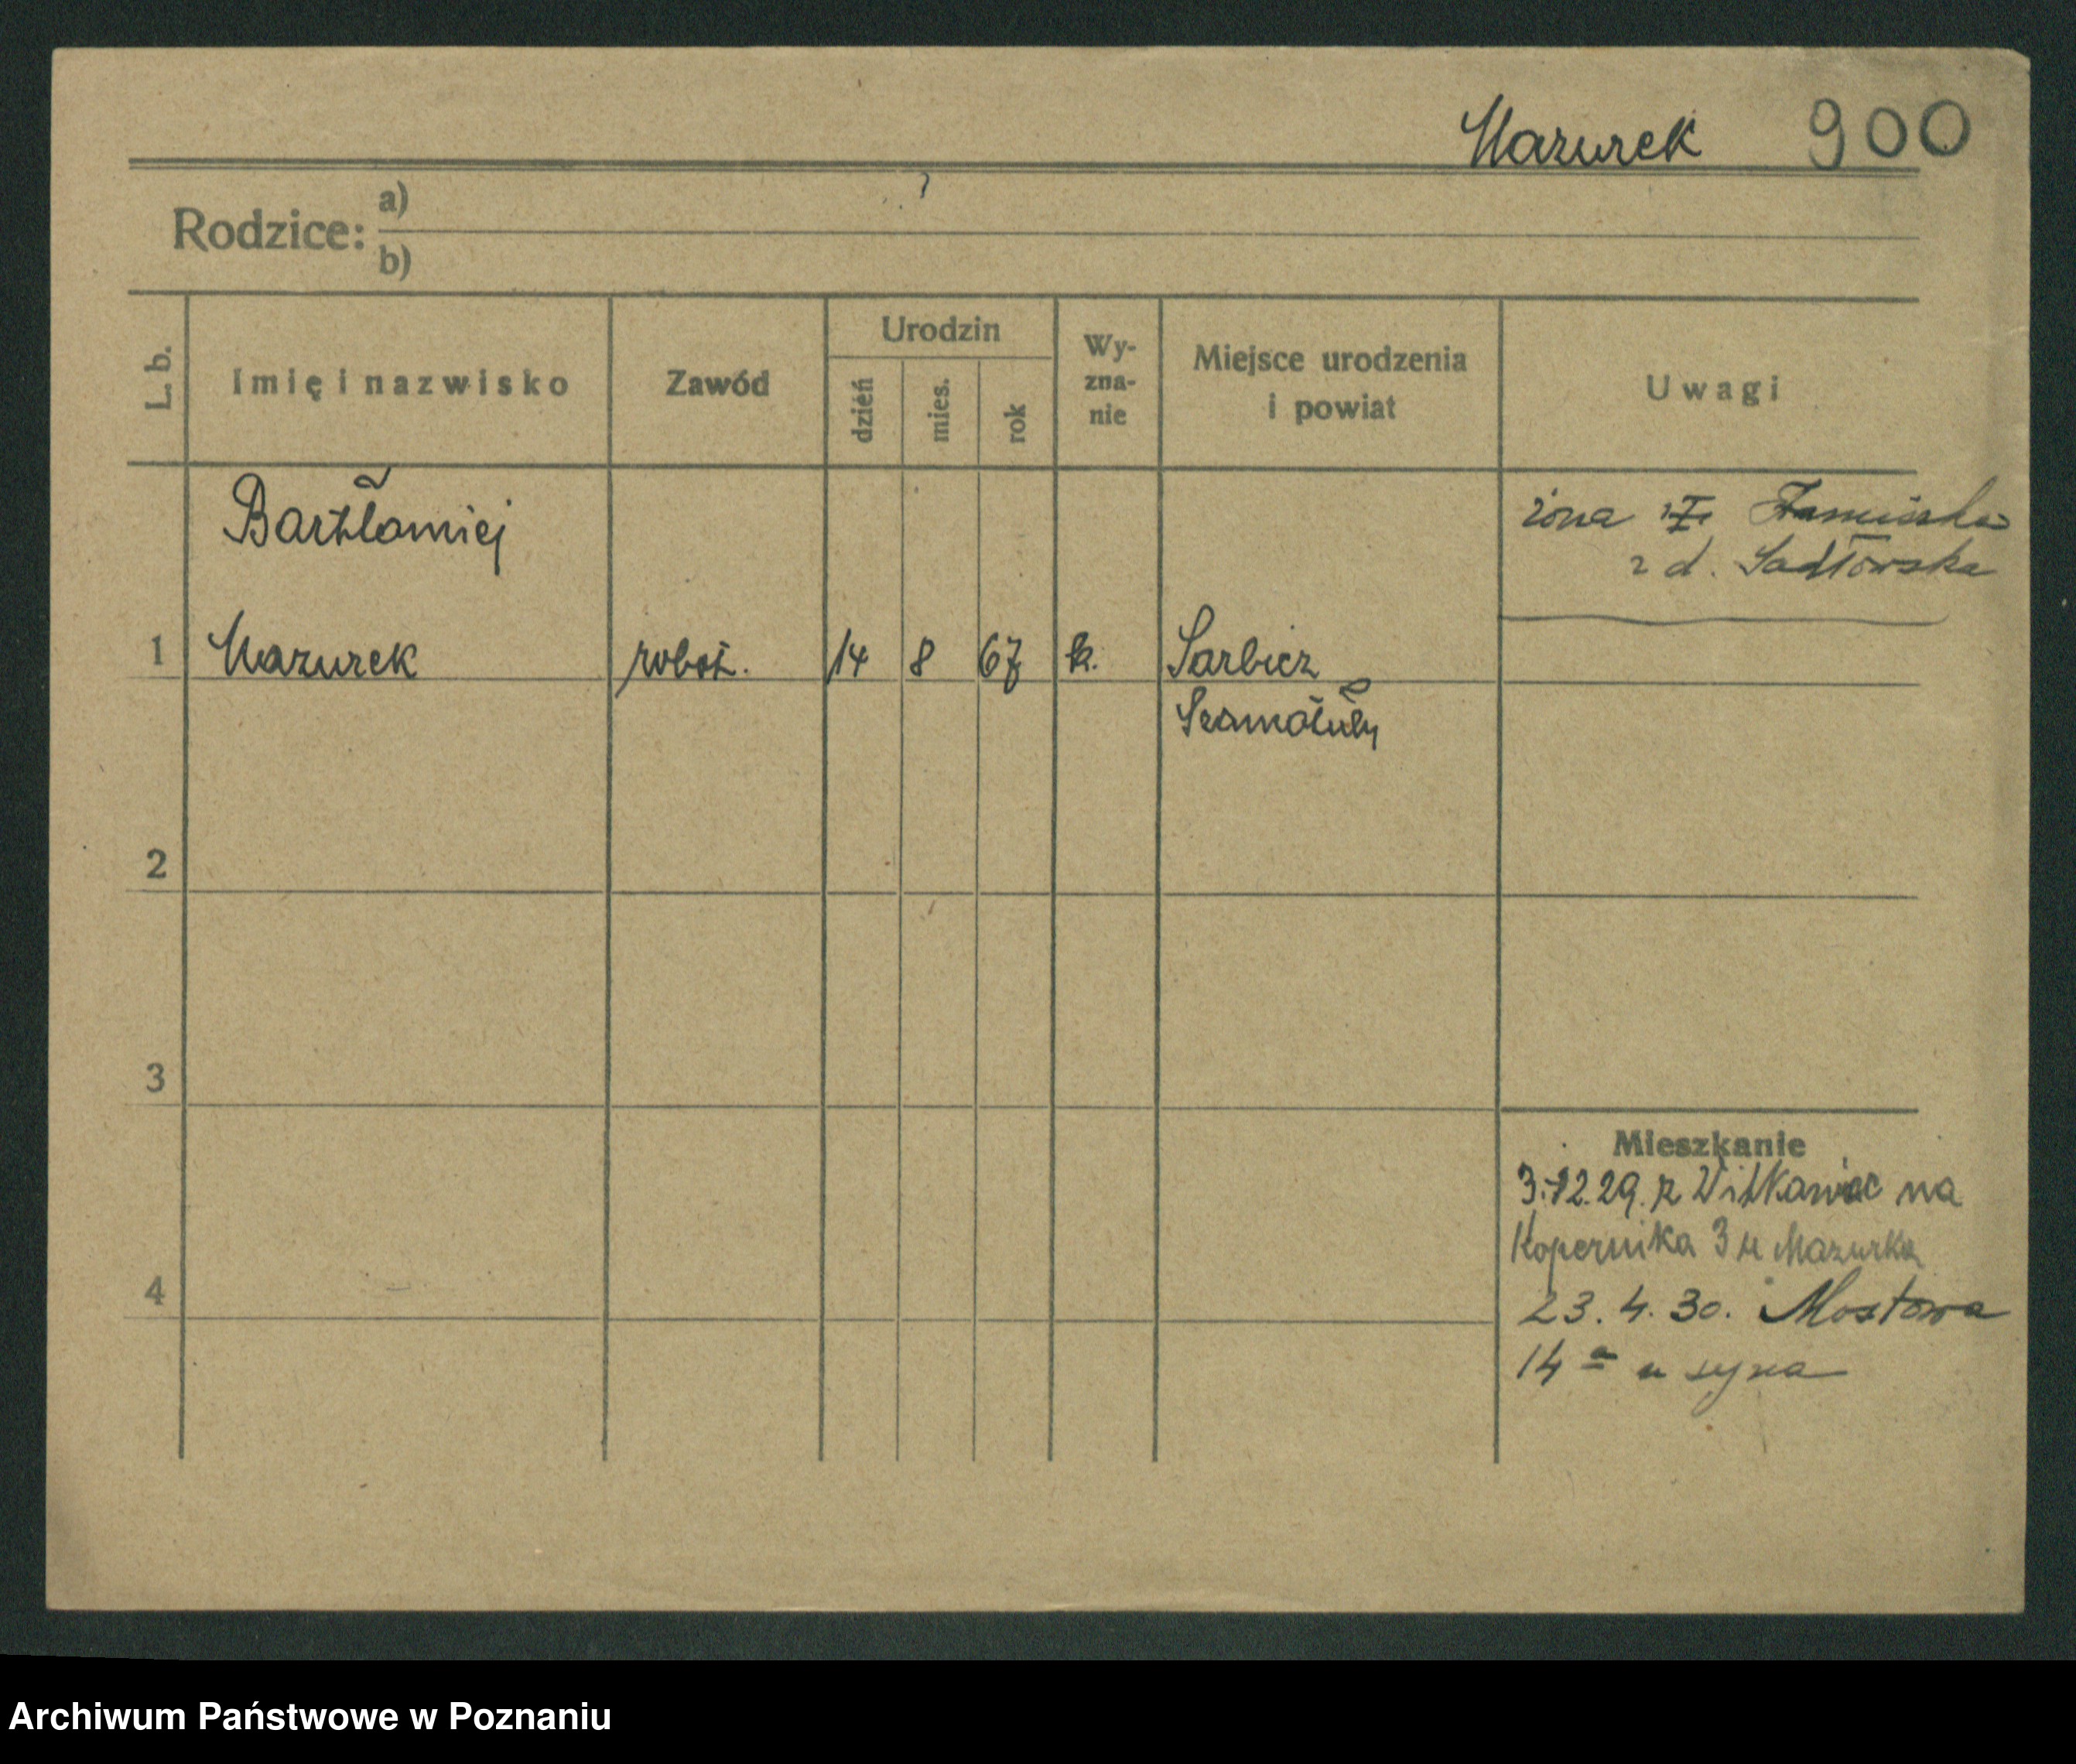 Mazurek 900
Rodzice: a)
b)
L. b.
Imię i nazwisko
Zawód
Urodzin
dzień
mies.
rok
Wy-
zna-
nie
Miejsce urodzenia
i powiat
Uwagi
Bartłomiej
żona Franciszka
z d. Sadłowska
1 Mazurek robot. 14 8 67 k. Sarbicz
Szamotuły
2
3
Mieszkanie
3.12.29. z Witkawiac na
Kopernika 3 u Mazurka
4
23. 4. 30. Mostowa
14 a u syna
Archiwum Państwowe w Poznaniu